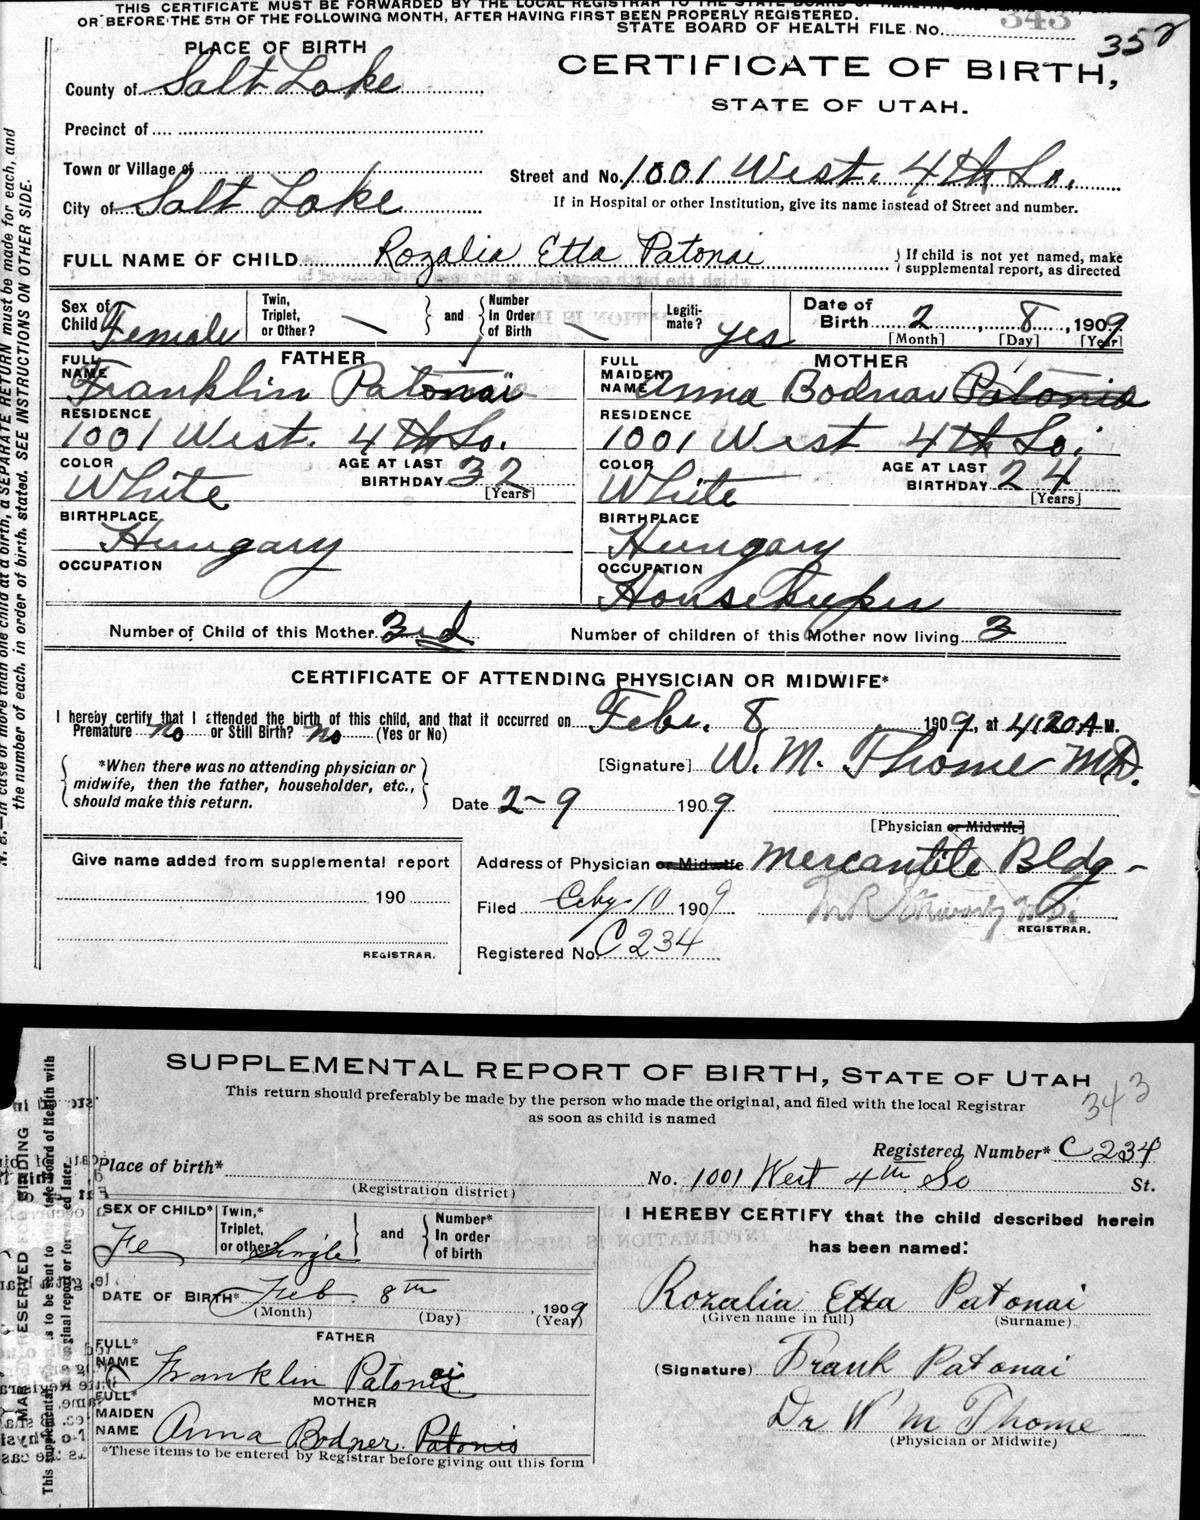 THIS CERTIFICATE MUST BE FORWARDED BY THE LOCAL REGISTRAR TO THE STATE BOARD OF HEALTH,
OR BEFORE THE 5TH OF THE FOLLOWING MONTH, AFTER HAVING FIRST BEEN PROPERLY REGISTERED.
STATE BOARD OF HEALTH FILE No. 343
352
PLACE OF BIRTH
CERTIFICATE OF BIRTH,
STATE OF UTAH.
County of Salt Lake
Precinct of
Town or Village of
Street and No. 1001 West. 4th So.
City of Salt Lake
If in Hospital or other Institution, give its name instead of Street and number.
FULL NAME OF CHILD Rozalia Etta Patonai
If child is not yet named, make
supplemental report, as directed
Sex of Child Female Twin, Triplet, or Other? and Number In Order of Birth Legiti-mate? yes Date of Birth 2, 8, 1909
[Month] [Day] [Year]
FATHER MOTHER
FULL NAME Franklin Patonai FULL MAIDEN NAME Anna Bodnar Patonia
RESIDENCE RESIDENCE
1001 West. 4th So. 1001 West 4th So.
COLOR White AGE AT LAST BIRTHDAY 32 [Years] COLOR White AGE AT LAST BIRTHDAY 24 [Years]
BIRTHPLACE Hungary BIRTHPLACE Hungary
OCCUPATION OCCUPATION Housekeeper
Number of Child of this Mother 3rd Number of children of this Mother now living 3
CERTIFICATE OF ATTENDING PHYSICIAN OR MIDWIFE*
I hereby certify that I attended the birth of this child, and that it occurred on Febr. 8, 1909, at 4:20 A M.
Premature no or Still Birth? no (Yes or No)
*When there was no attending physician or
midwife, then the father, householder, etc.,
should make this return.
[Signature] W. M. Thome MD.
Date 2-9 1909
[Physician or Midwife]
Give name added from supplemental report
190
REGISTRAR.
Address of Physician or Midwife Mercantile Bldg-
Filed 10 1909
REGISTRAR.
Registered No. C234
N. B.—In case of more than one child at a birth, a SEPARATE RETURN must be made for each, and
the number of each, in order of birth, stated. SEE INSTRUCTIONS ON OTHER SIDE.
SUPPLEMENTAL REPORT OF BIRTH, STATE OF UTAH
This return should preferably be made by the person who made the original, and filed with the local Registrar
as soon as child is named
343
Registered Number* C234
Place of birth*
(Registration district)
No. 1001 West 4th So St.
SEX OF CHILD* Fe Twin,* Triplet, or other? Single and Number* In order of birth
I HEREBY CERTIFY that the child described herein
has been named:
DATE OF BIRTH* Feb. 8th, 1909
(Month) (Day) (Year)
Rozalia Etta Patonai
(Given name in full) (Surname)
FATHER
FULL* NAME Franklin Patonai
(Signature) Frank Patonai
MOTHER
FULL* MAIDEN NAME Anna Bodner Patonis
Dr W M Thome
(Physician or Midwife)
*These items to be entered by Registrar before giving out this form